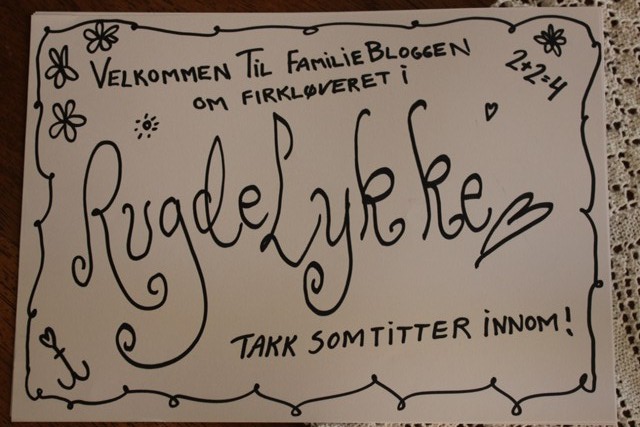 VELKOMMEN TIL FAMILIEBLOGGEN
OM FIRKLØVERET i
2+2=4
RugdeLykke
TAKK SOM TITTER INNOM!